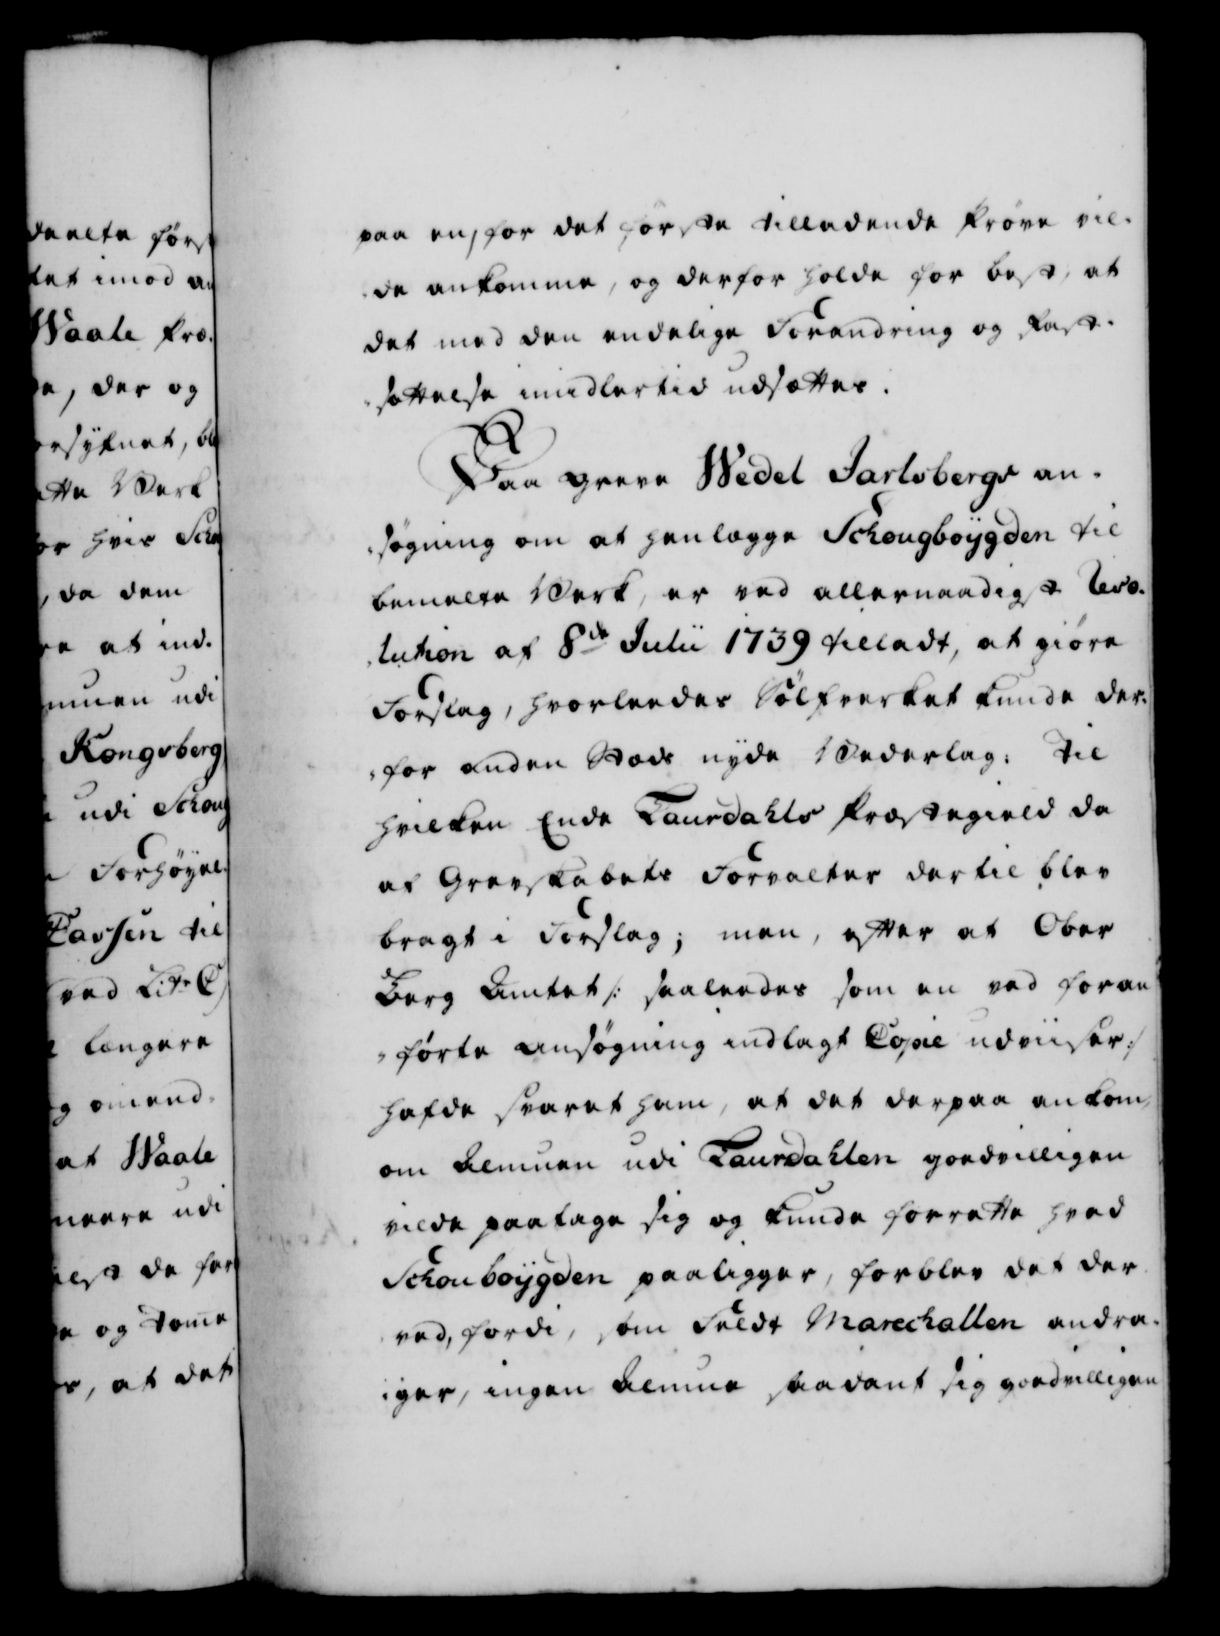 deelte først
tet imod an
Waale Præ-
de, der og
orsÿknet, bl
ette Werk
for hvis Scho
, da dem
re at ind-
muen udi
Kongsberg
udi Schoug
Forhøyel-
Cassen til
ved Litr C)
længere
og omend-
at Waale
meere udi
elst de for
de og tome
, at det
paa en, for det første tilladende Prøve vil-
de ankomme, og derfor holde for best, at
det med den endelige Forandring og Fast-
sættelse imidlertid udsættes.
Paa Greve Wedel Jarlsbergs an-
søgning om at henlægge Schougboÿgden til
bemelte Werk, er ved allernaadigst Reso-
lution af 8de Julii 1739 tilladt, at giøre
Forslag, hvorleedes Sølfverket kunde der-
for anden Stæds nyde Wederlag: Til
hvilken Ende Laurdahls Præstegield da
af Grevskabets Forvalter dertil blev
bragt i Forslag; men, efter at Ober
Berg Amtet /: saaledes som en ved foran
førte ansøgning indlagt Copie udviiser:/
hafde svaret ham, at det derpaa ankom,
om Almuen udi Laurdahlen goedvilligen
vilde paatage sig og kunde forrette hvad
Schouboÿgden paaligger, forblev det der
ved, fordi, som Feldt Marechallen andra-
ger, ingen Almue saadant sig goedvilligen